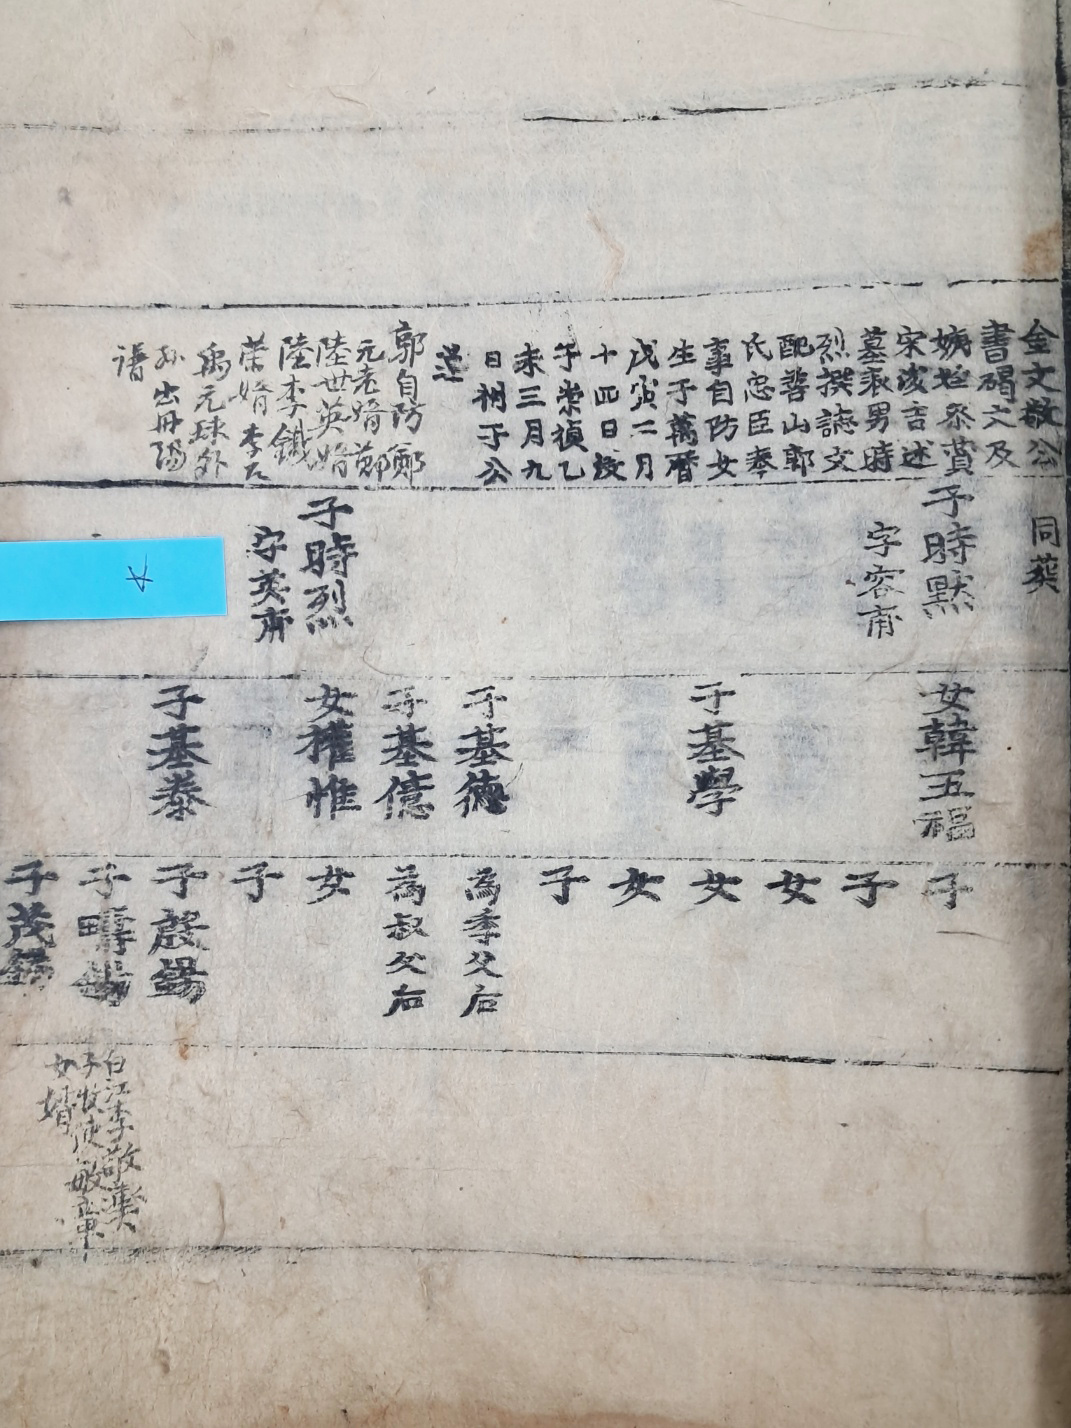 金文敬公
書碣文及
姨姪參贊
宋浚吉述
墓表男時
烈撰誌文
配善山郭
氏忠臣奉
事自防女
生于萬曆
戊寅二月
十四日歿
于崇禎乙
未三月九
日祔于公
塋
郭自防鄭
元老婿鄭
陸世英婿
陸李鐵
荣婿李元
禹元球外
孙出丹陽
譜
同葬
子時默
字容甫
子時烈
字英甫
女韓五福
子基學
子基德
子基億
女權惟
子基泰
子
子
女
女
女
子
為季父后
為叔父后
女
子
子殷錫
子疇錫
子茂錫
白江李敬輿
子牧使敏章
女婿